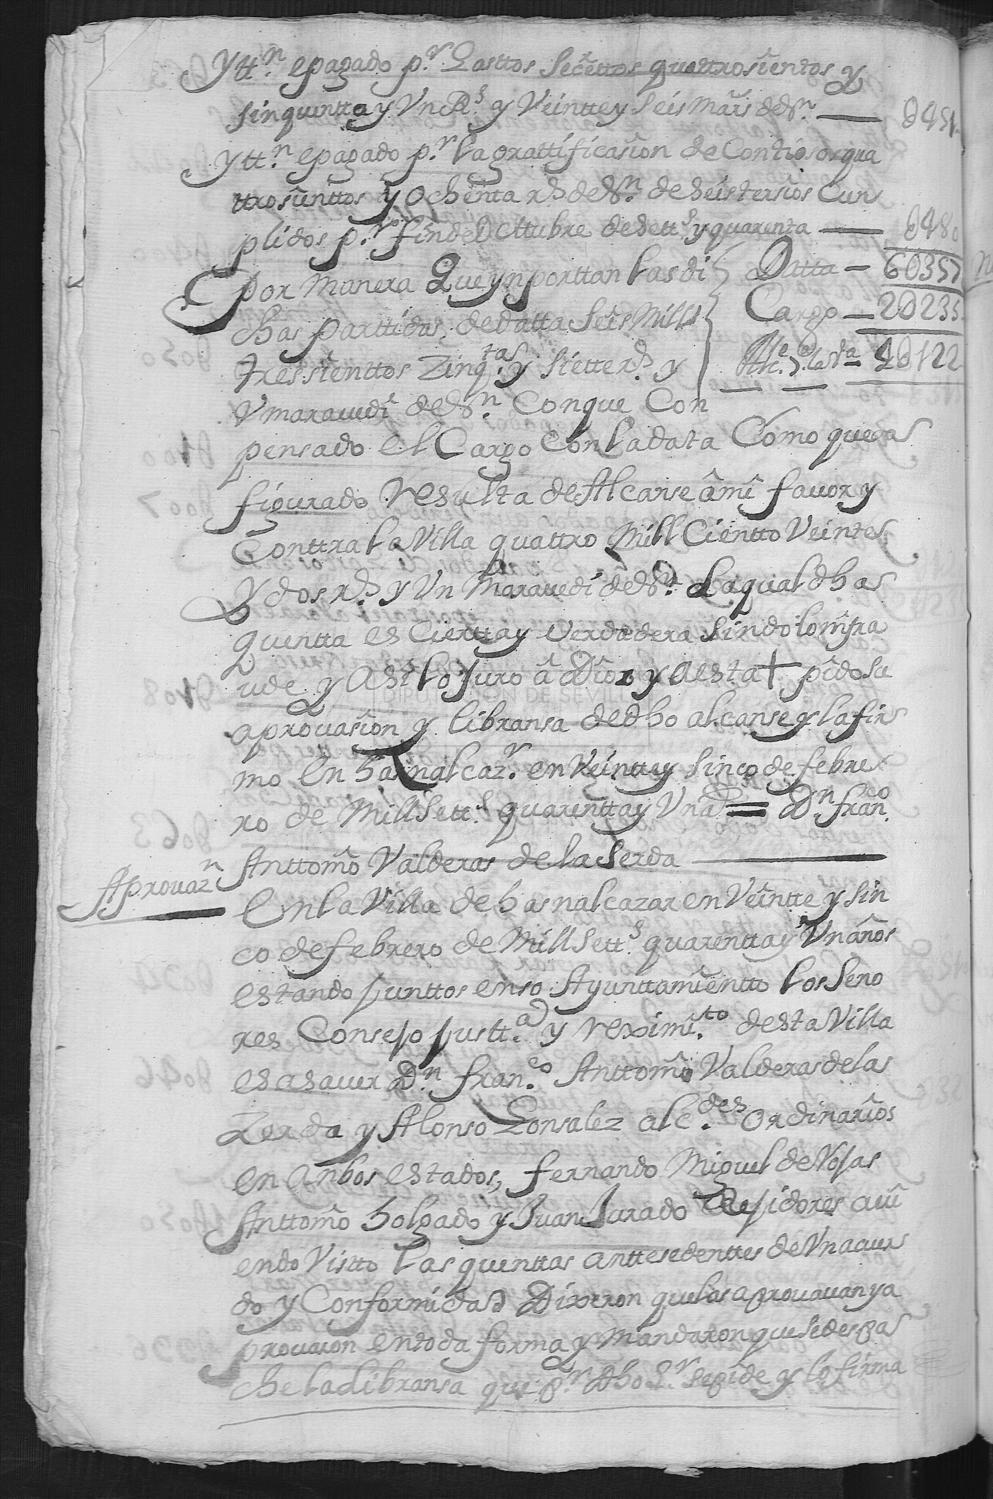 Ytt.n epagado p.r Gasttos Secrettos quattrosientos y
sinquentta y Un R.s y Veintte y Seis Mars de Vn — 0451
ytt.n epagado p.r la grattificasion de Contios qua
ttrosienttos y ochenta rs de Vn. de seis tersios Cun
plidos p.r fin de Octtubre de sett.s y quarenta — 0480
Por Manera Que ynporttan las di
Datta — 60357
chas parttidas de datta Seis Mill
Cargo — 20235
tressienttos Zinq.tas y Siette rs. y
Alc.e Ca la Va — 40122
Vmaravedi de Vn Conque Con
pensado el Cargo Con la data Como queda
figurado resulta de Alcanse a mi favor y
Conttra la Villa quattro Mill Cientto Veintte
y dos rs. y Un Maravedi de Vn. la qual dha
quentta es Ciertta y Verdadera sin dolo ni fra
ude y Asi lo Juro a Dios y a esta + pido su
aprovasion y libransa de dho alcanse y la fir
mo en haznalcaz.r en Veintte y Sinco de febre
ro de Mill Sett.s quarentta y Un a.s = Dn. fran.co
Anttonio Valderas de la Serda —
Aprovaz.n
En la Villa de hasnalcazar en Veintte y sin
co de febrero de Mill Sett.s quarentta y Un años
estando Junttos en so Ayunttamientto los Seno
res Consejo Justt.a y reximi.to desta Villa
es a saver Dn. fran.co Anttonio Valderas de la
Zerda y Alonso Gonsalez alc.des Ordinarios
en Anbos estados, fernando Miguel de Rojas
Anttonio holgado y Juan Jurado Rejidores avi
endo Vistto las quenttas anttesedenttes de Un acuer
do y Conformidad Dixeron que las aprovavan y a
provaron en toda forma y Mandaron que se despa
che la libransa que p.r dho S.r se pide y lo firma
DIPUTACIÓN DE SEVILLA